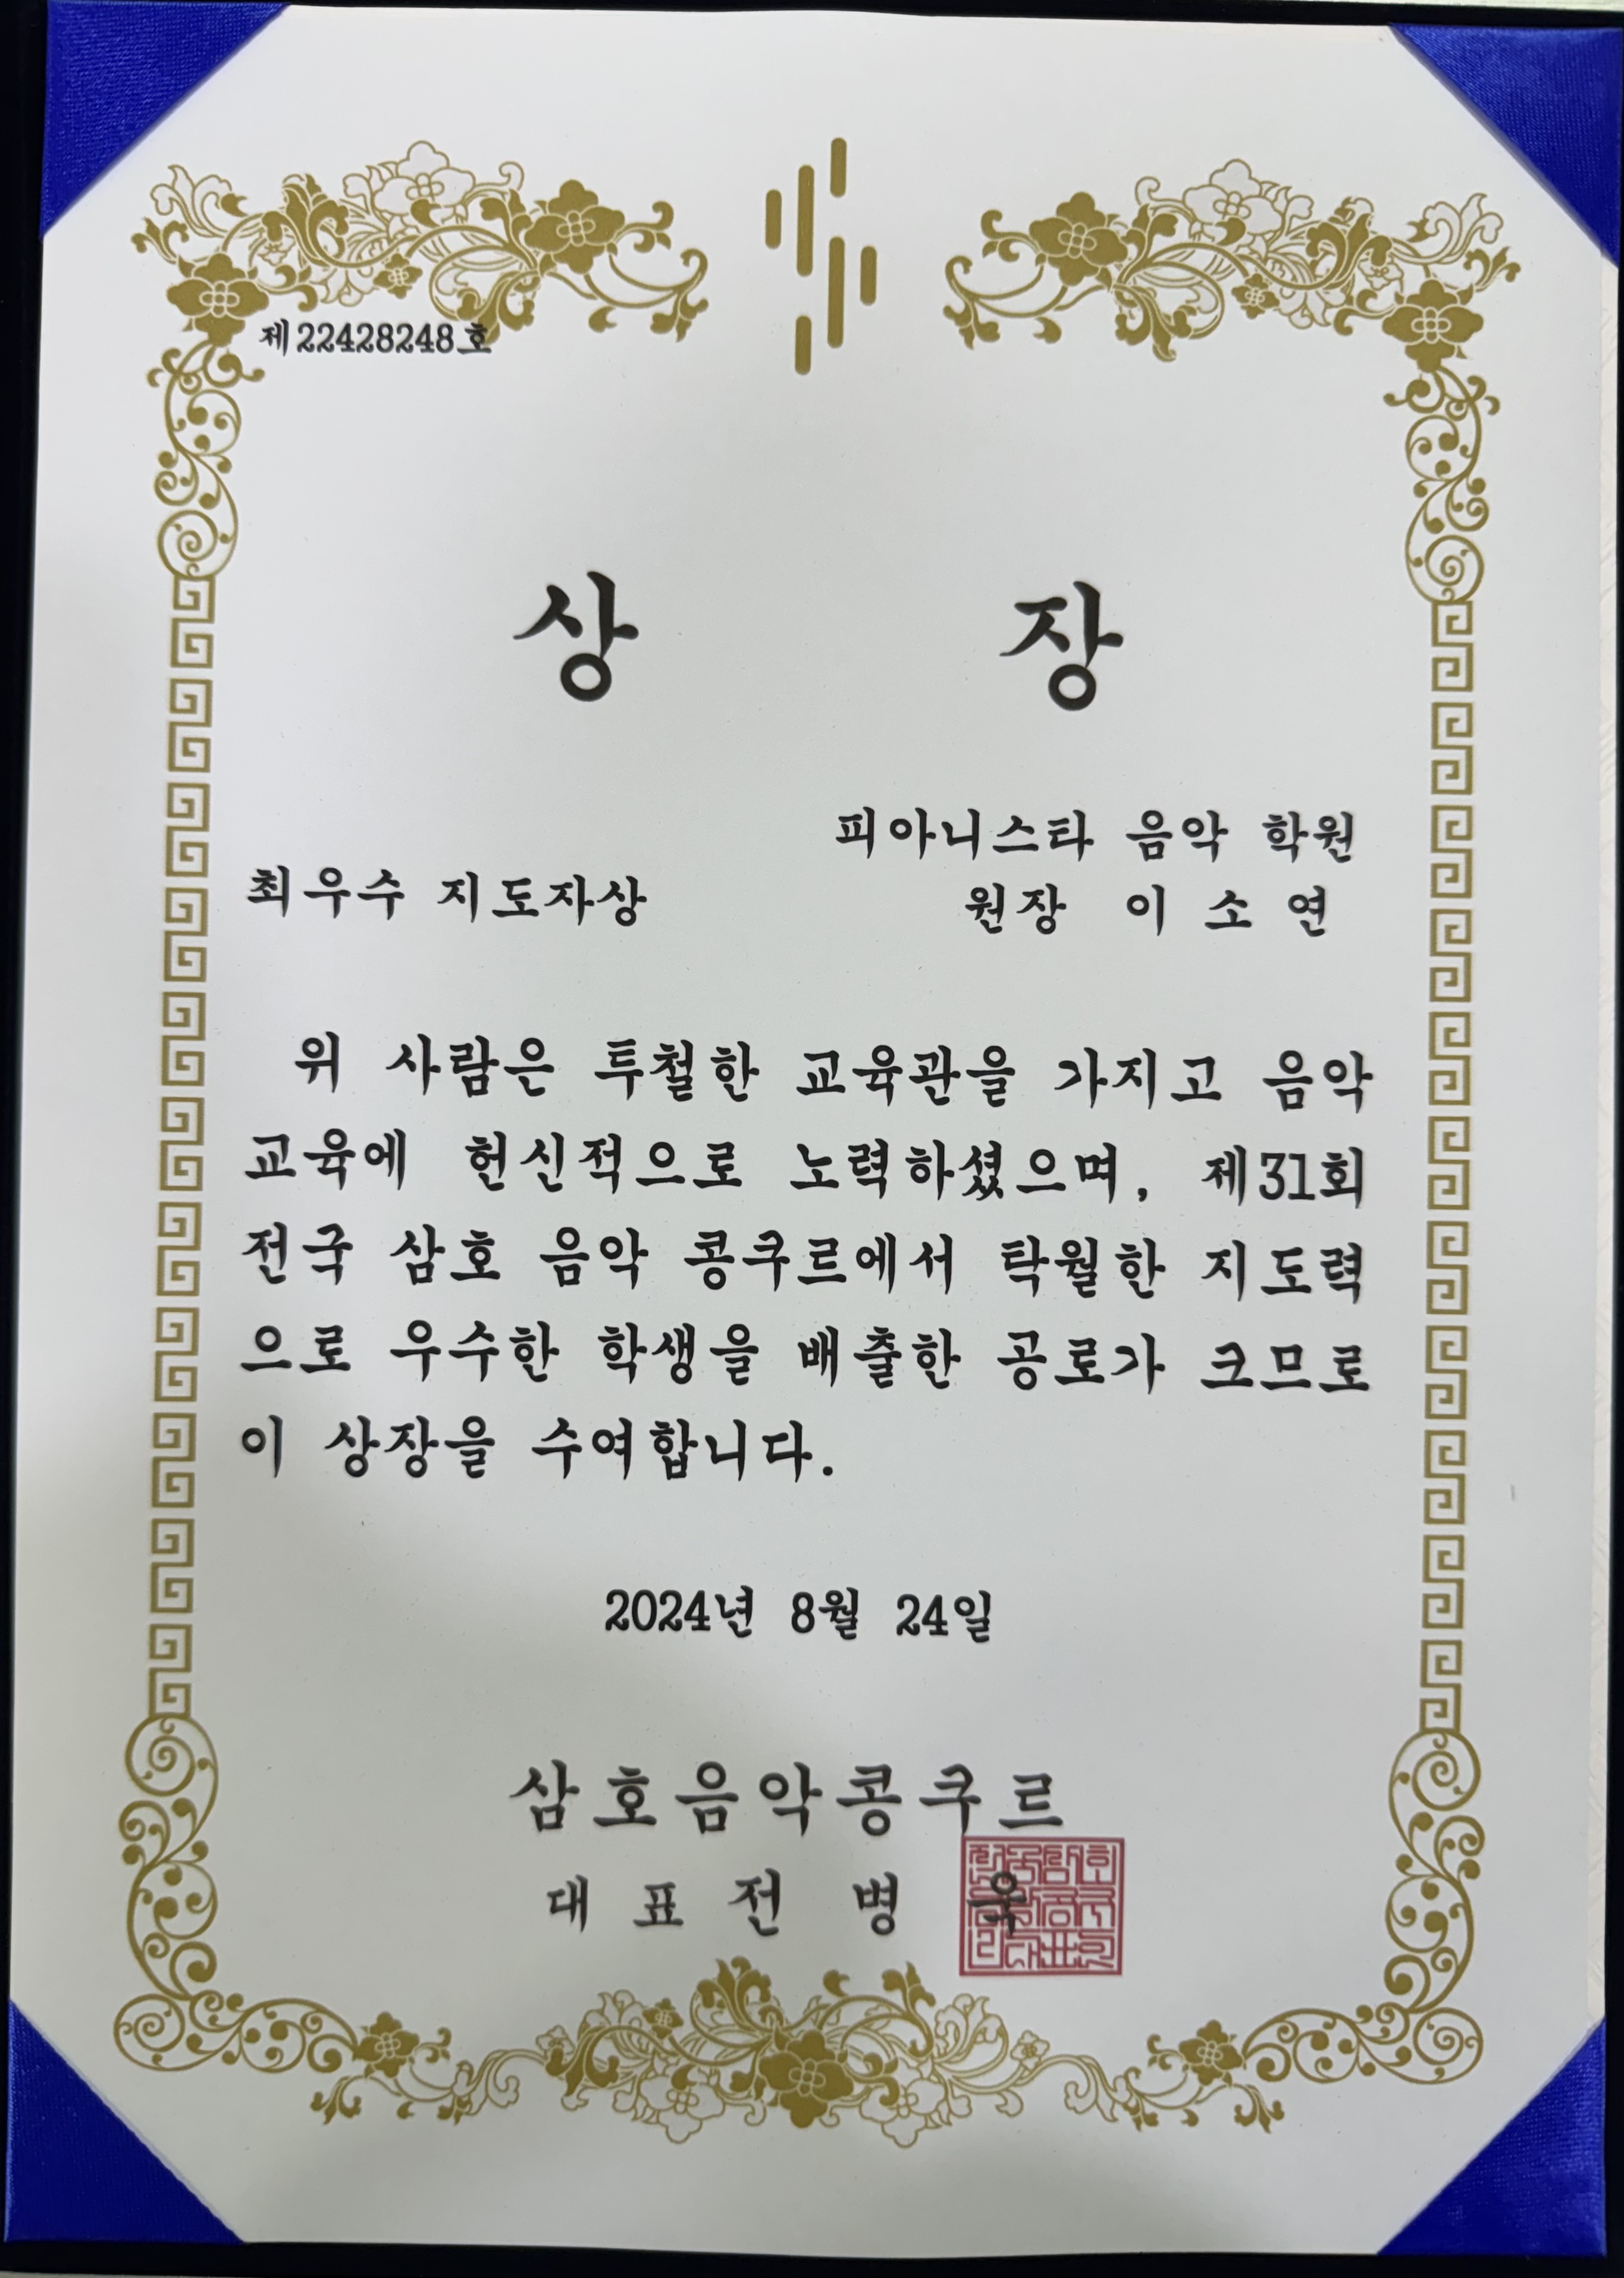 제22428248호
상 장
피아니스타 음악 학원
최우수 지도자상
원장 이 소 연
위 사람은 투철한 교육관을 가지고 음악
교육에 헌신적으로 노력하셨으며, 제31회
전국 삼호 음악 콩쿠르에서 탁월한 지도력
으로 우수한 학생을 배출한 공로가 크므로
이 상장을 수여합니다.
2024년 8월 24일
삼호음악콩쿠르
대 표 전 병 욱